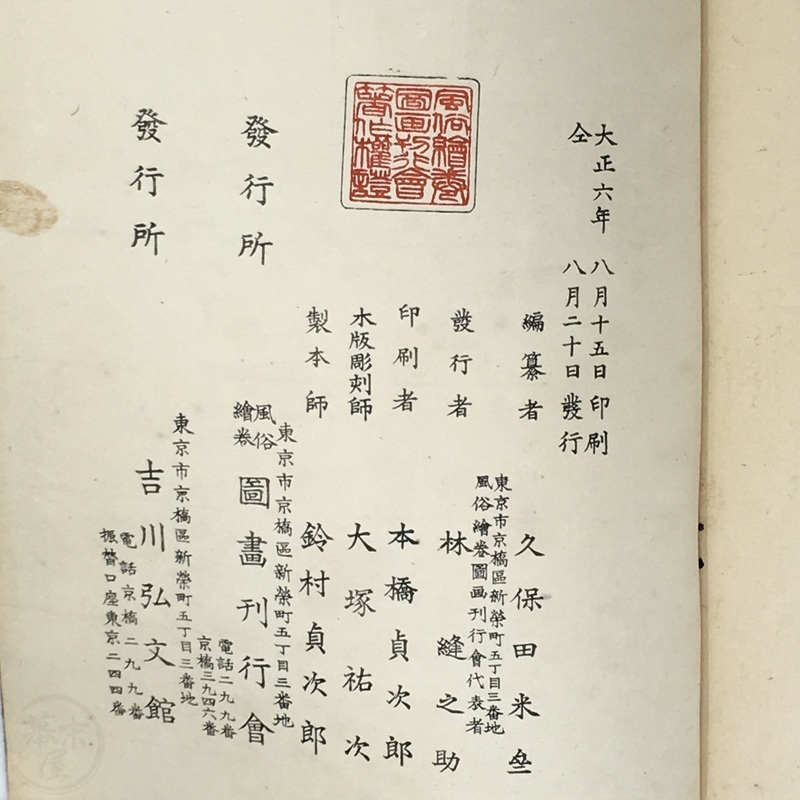 大正六年 八月十五日印刷
仝 八月二十日發行
風俗繪卷
圖画刊行會
著作權證
編纂者 久保田米𠫭
東京市京橋區新榮町五丁目三番地
風俗繪卷圖画刊行會代表者
發行者 林縫之助
印刷者 本橋貞次郎
木版彫刻師 大塚祐次
製本師 鈴村貞次郎
東京市京橋區新榮町五丁目三番地
發行所 風俗繪卷圖畫刊行會
電話二九九番
京橋三九四六番
東京市京橋區新榮町五丁目三番地
發行所 吉川弘文館
電話京橋二九九番
振替口座東京二四四番